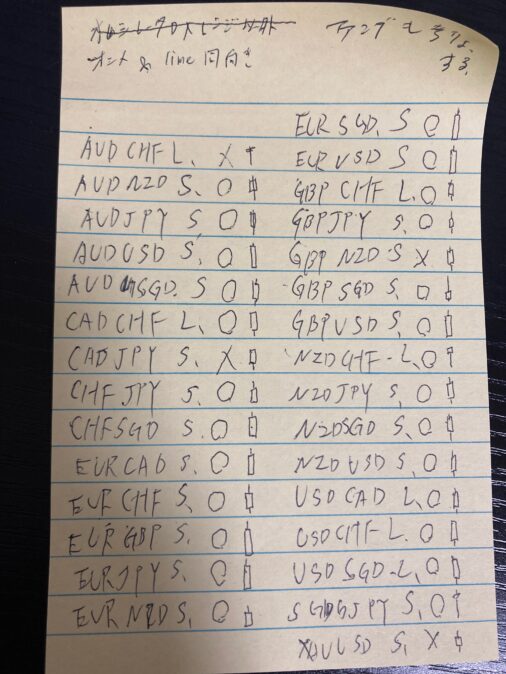 line 同向き
する。
AUDCHF L. X
AUDNZD S. O
AUDJPY S. O
AUDUSD S. O
AUDSGD. S O
CADCHF L. O
CADJPY S. X
CHFJPY S. O
CHFSGD S. O
EURCAD S. O
EURCHF S. O
EURGBP S. O
EURJPY S. O
EURNZD S. O
EURSGD. S O
EURUSD S O
GBPCHF L. O
GBPJPY S. O
GBPNZD S X
GBPSGD S. O
GBPUSD S. O
NZDCHF-L. O
NZDJPY S. O
NZDSGD S. O
NZDUSD S. O
USDCAD L. O
USDCHF-L. O
USDSGD-L. O
SGDJPY S. O
XAUUSD S. X